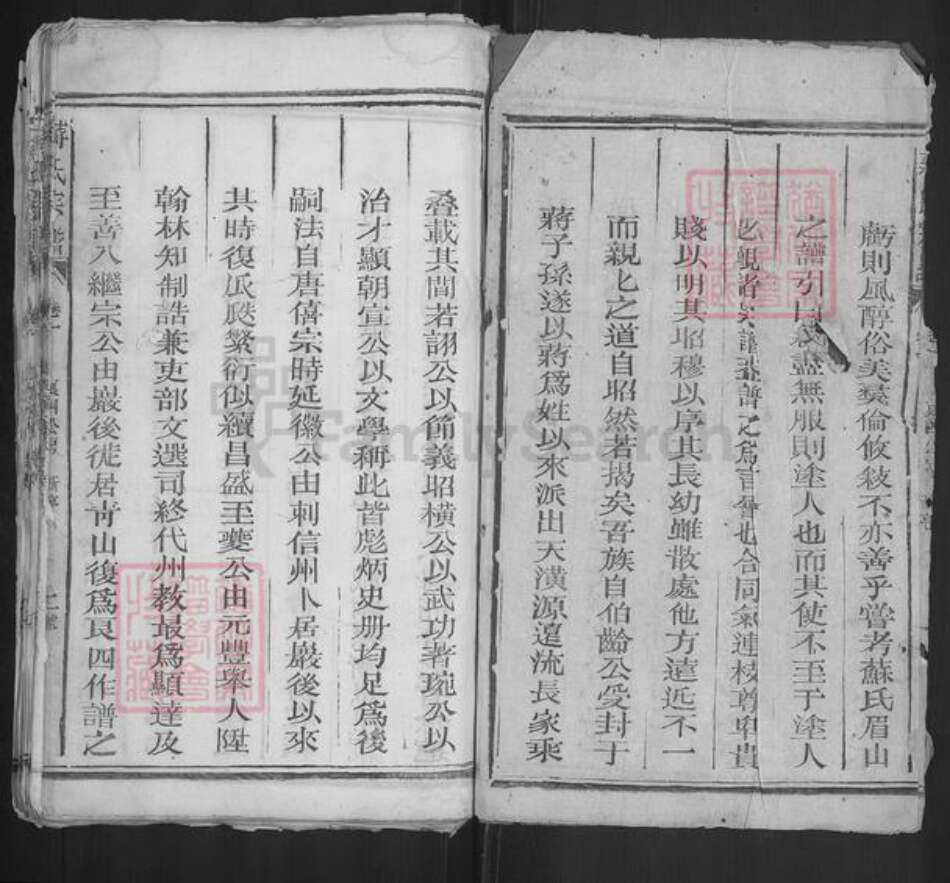 虧則風醇俗美彞倫攸敍不亦善乎嘗考蘇氏眉山
之譜引曰盡無服則塗人也而其使不至于塗人
譜之爲言普也合同氣連枝尊卑貴
賤以明其昭穆以序其長幼雖散處他方遠近不一
而親匕之道自昭然若揭矣吾族自伯齡公受封于
蔣子孫遂以蔣爲姓以來派出天潢源遠流長家乘
疊載其間若詡公以節義昭橫公以武功著琬公以
治才顯朝宣公以文學稱此皆彪炳史册均足爲後
嗣法自唐僖宗時延徽公由刺信州卜居巖後以來
其時復瓜瓞繁衍似續昌盛至夔公由元豐舉人陞
翰林知制誥兼吏部文選司終代州教最爲顯達及
至善八繼宗公由巖後徙居靑山復爲艮四作譜之
蔣氏宗譜 卷一
FamilySearch